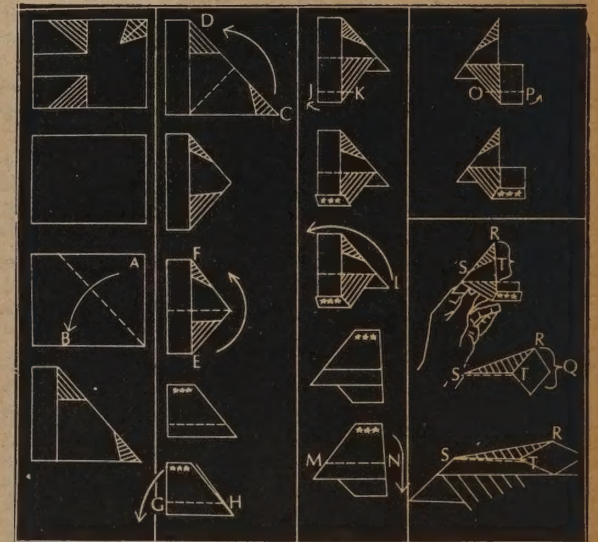 A
B
D
C
F
E
G H
J K
L
M N
O P
R
S T
R
S T Q
R
S T